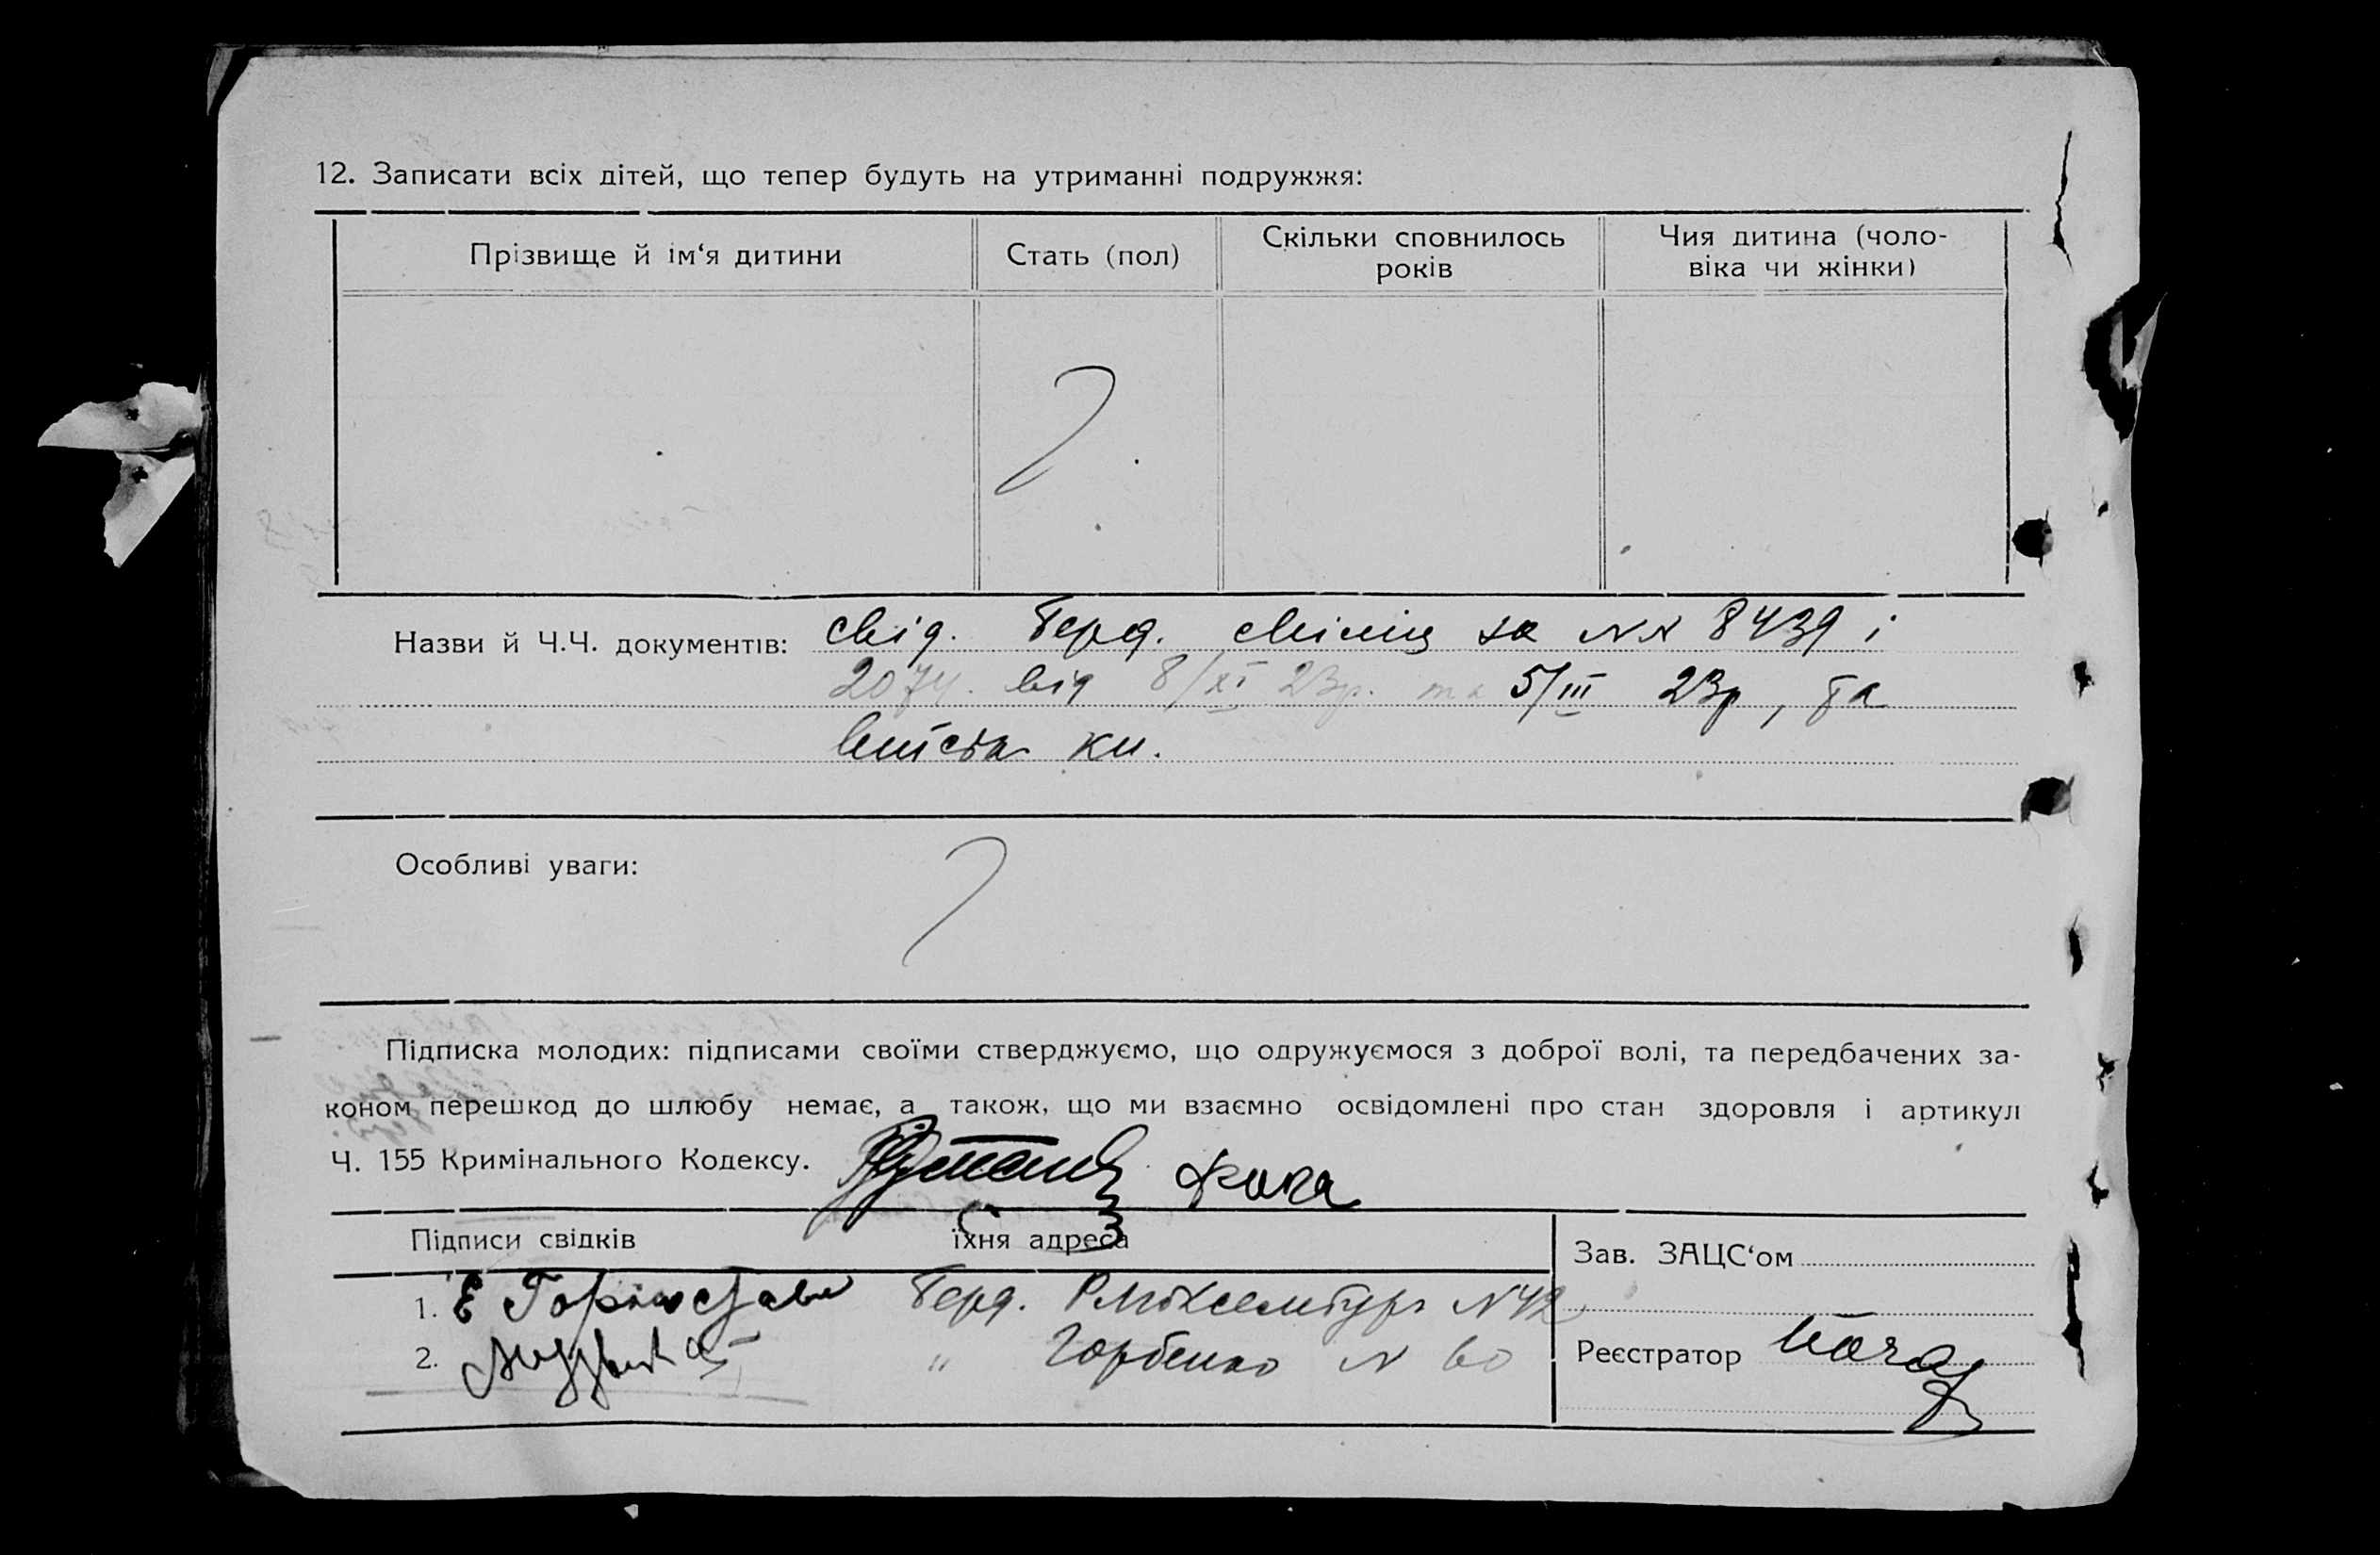 12. Записати всіх дітей, що тепер будуть на утриманні подружжя:
Прізвище й ім‘я дитини
Стать (пол)
Скільки сповнилось
років
Чия дитина (чоло-
віка чи жінки)
Назви й Ч.Ч. документів: свід. Берд. міліц за NN 8439 і
2074. від 8/XI 23р. та 5/III 23р, та
кн.
Особливі уваги:
Підписка молодих: підписами своїми стверджуємо, що одружуємося з доброї волі, та передбачених за-
коном перешкод до шлюбу немає, а також, що ми взаємно освідомлені про стан здоровля і артикул
Ч. 155 Кримінального Кодексу.
Підписи свідків їхня адреса
1. Е Берд. Р. Люксембург N 42
2. " Горбенко N 60
Зав. ЗАЦС‘ом
Реєстратор